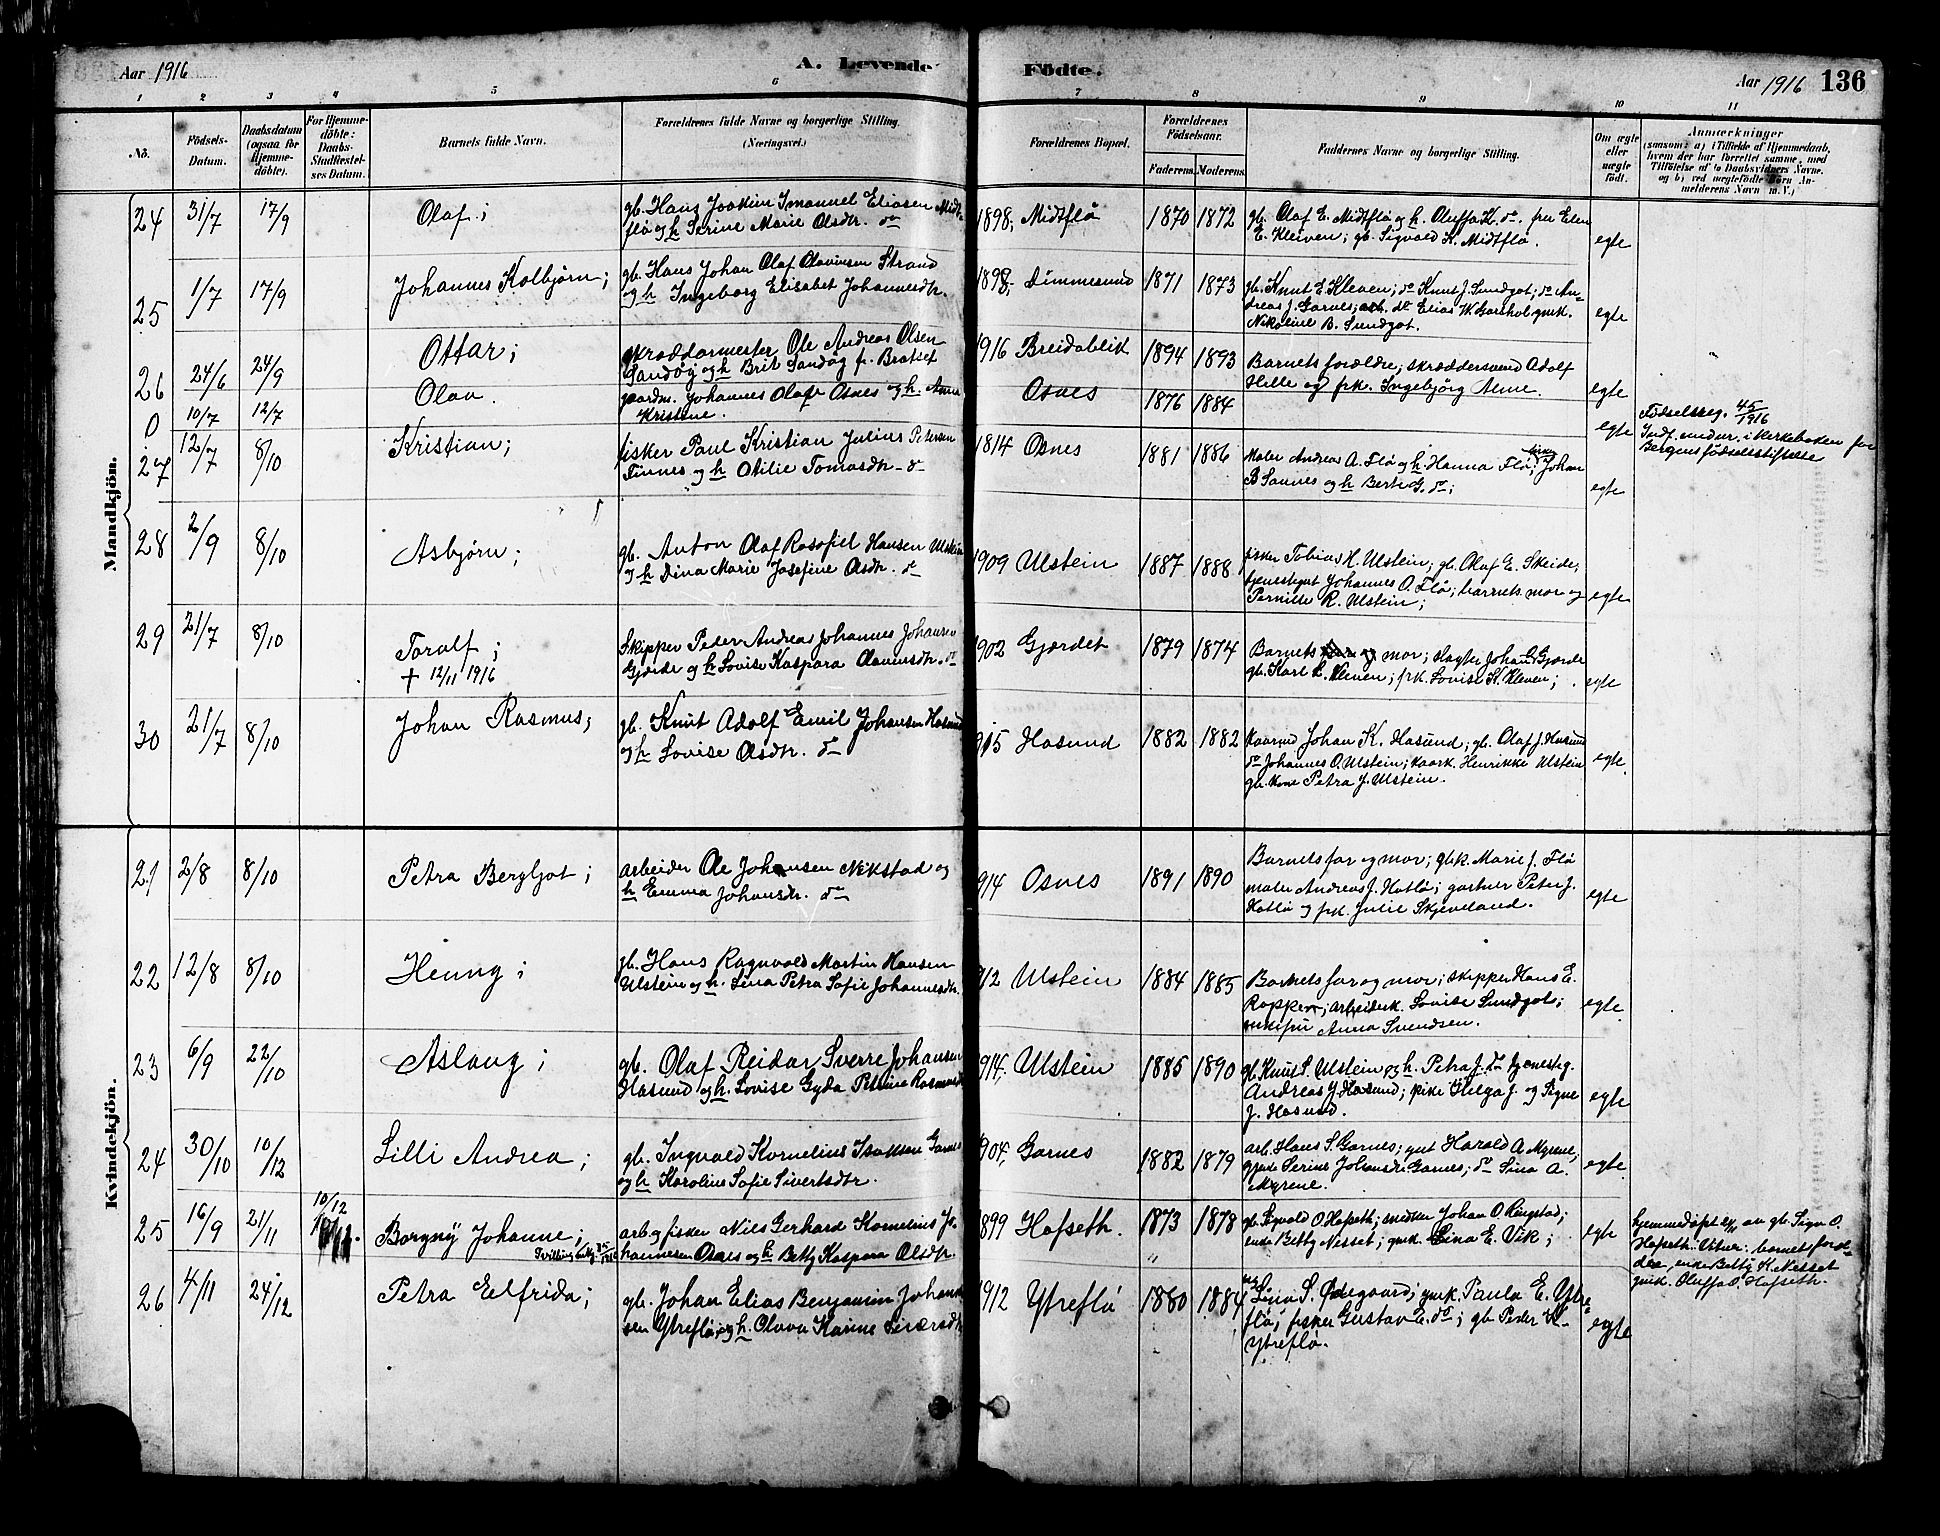 Aar 1916
A. Levende Födte.
Aar 1916 136
1 2 3 4 5 6 7 8 9 10 11
No.
Födsels-
Datum.
Daabsdatum
(ogsaa for
Hjemme-
döbte).
For Hjemme-
döbte:
Daabs-
Stadfæstel-
ses Datum.
Barnets fulde Navn.
Forældrenes fulde Navne og borgerlige Stilling.
(Næringsvei.)
Forældrenes Bopæl.
Forældrenes
Födselsaar.
Faderens. Moderens.
Faddernes Navne og borgerlige Stilling.
Om ægte
eller
uægte
født.
Anmærkninger
(saasom: a) i Tilfælde af Hjemmedaab,
hvem der har forrettet samme, med
Tilföielse af to Daabsvidners Navne,
og b) ved uægtefödte Börn An-
melderens Navn m. V.)
Mandkjön.
24 31/7 17/9 Olaf;
gb. Hans Joakim Imanuel Eliasen Midt-
flø og h Serine Marie Olsdtr. do
1898; Midtflø 1870 1872
gb. Olaf E. Midtflø og h. Oluffa K. do. fru Elen
E. Kleiven; gb. Sigvald K. Midtflø.
egte
25 1/7 17/9 Johannes Kolbjørn;
gb. Hans Johan Olaf Olavinsen Strand
og h Ingeborg Elisabet Johannesdtr.
Dimmesund 1871 1873
gb. Knut E. Kleven; do Knut J. Sundgot; do An-
dreas J. Garnes; do Elias W. Garshol gmk.
Nikoline B. Sundgot.
egte
26 24/6 24/9 Ottar;
skræddermester Ole Andreas Olsen
Sandøy og h Brit Sandøy f. Bratset
1916 Breidablik 1894 1893
Barnets forældre, skræddersvend Adolf
Hille og frk. Ingebjørg Aeme.
egte
0 10/7 12/7 Olav.
gaardm. Johannes Olafs Osnes og h. Anna
Kristine.
Osnes 1876 1884
egte
Födselsreg. 45/1916
Indf. under. i kirkeboken for
Bergens födselsstiftelse
27 12/7 8/10 Kristian;
fisker Paul Kristian Julius Petersen
Finnes og h Otilie Tomasdtr. do
1814 Osnes 1881 1886
Maler Andreas A. Flø og h. Hanna Flø; Johan
B Sannes og h Berte G. do;
egte
28 2/9 8/10 Asbjørn;
gb. Anton Olaf Rasofiel Hansen Ulstein
og h Dina Marie Josefine Olsdtr. do
1909 Ulstein 1887 1888
fisker Tobias H. Ulstein; gb. Olaf E. Skeide,
tjenestegut Johannes O. Flø; barnets mor og
Pernille R. Ulstein;
egte
29 21/7 8/10 Toralf;
† 12/11 1916
Skipper Peder Andreas Johannes Johansen
Gjerde og h Lovise Kaspara Olavinsdtr. do
1902 Gjerdet 1879 1874
Barnets mor; slagter Johan G. Gjerde
gb. Karl K. Kleven; frk. Lovise K. Kleven;
egte
30 21/7 8/10 Johan Rasmus;
gb. Knut Adolf Emil Johansen Hasund
og h Lovise Olsdtr. do
915 Hasund 1882 1882
kaarmd Johan K. Hasund; gb. Olaf J. Hasund
do Johannes O. Ulstein; kaark. Henrikke Ulstein
gb. kone Petra J. Ulstein.
egte.
Kvindekjön.
21 2/8 8/10 Petra Bergljot;
arbeider Ole Johansen Nekstad og
h Emma Johansdtr. do
914 Osnes 1891 1890
Barnets far og mor; gbk. Marie J. Flø
maler Andreas J. Hatlø; gartner Peter J.
Hatlø og frk. Julie Skjeveland.
egte
22 12/8 8/10 Henny;
gb. Hans Ragnvald Martin Hansen
Ulstein og h. Lina Petra Sofie Johannesdtr.
912 Ulstein 1884 1885
Barnets far og mor; skipper Hans E.
Røppen; arbeiderk. Lovise Sundgot;
enkefru Anna Svendsen.
egte.
23 6/9 22/10 Aslaug;
gb. Olaf Reidar Sverre Johansen
Hasund og h. Lovise Gyda Petrine Rasmusdtr
914, Ulstein 1885 1890
gb. Knut S. Ulstein og h. Petra J. do tjenesteg.
Andreas J. Hasund; pike Helga J. og Signe
J. Hasund.
egte
24 30/10 10/12 Lilli Andrea;
gb. Ingvald Kornelius Isaksen Garnes
og h Karoline Sofie Sivertsdtr.
904, Garnes 1882 1879
arb. Hans S. Garnes; gut Harald A Myrene,
gmk. Serine Johansdtr Garnes; do Lina A.
Myrene.
egte
25 16/9 21/11 10/12 Borgny Johanne;
arb. og fisker Nils Gerhard Kornelius Jo-
hannesen Osnes og h Betty Kaspara Olsdtr.
899 Hofseth. 1873 1878
gb. Sigvald O Hofseth; snedker Johan O Ringstad;
enke Betty Nesset; gmk. Lina E. Vik;
egte
hjemmedøpt av gb. Sigv. O.
Hofseth. Vitner: barnets foræl-
dre, enke Betty K. Nesset
gmk. Oluffa O. Hofseth.
26 4/11 24/12 Petra Elfrida;
gb. Johan Elias Benjamin Johan-
sen Ytreflø og h. Olava Karine Siversdtr
1912 Ytreflø 1880 1884
Lina S. Ødegaard; gmk. Paula E. Ytre-
flø; fisker Gustav E. do; gb Peder K
Ytreflø.
egte